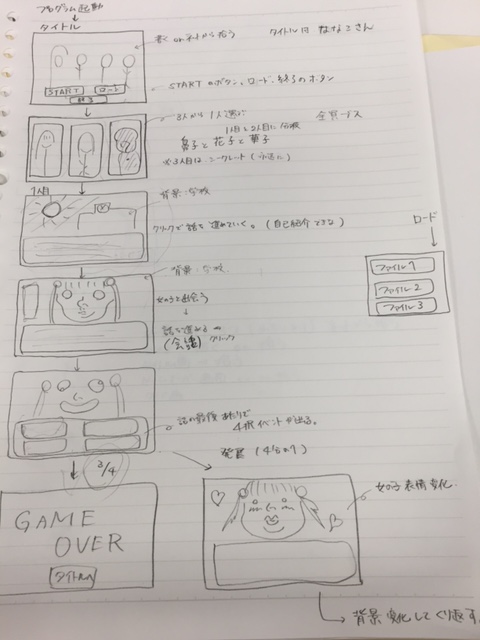 プログラム起動
タイトル
書く or ネットから拾う
タイトルは ななこさん
START
ロード
終了
STARTのボタン、ロード、終了のボタン
3人から1人選ぶ
1人目と2人目に分岐
全員ブス
鼻子と花子と華子
※3人目はシークレット
1人目
背景:学校
クリックで話を進めていく。(自己紹介できな)
ロード
ファイル1
ファイル2
ファイル3
背景:学校
女の子と出会う
話を進める
(会話) クリック
話の最後あたりで
4択イベントが出る。
3/4
発展 (4分の1)
GAME
OVER
タイトルへ
女の子 表情変化
背景変化してくり返す